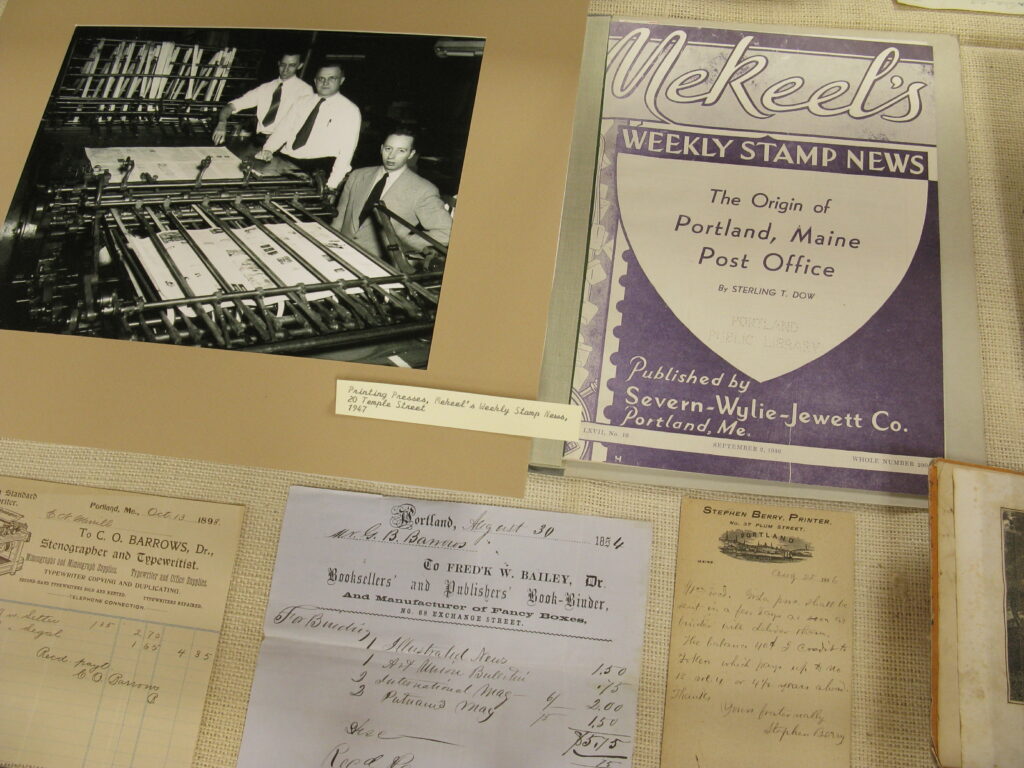 Mekeel's
WEEKLY STAMP NEWS
The Origin of
Portland, Maine
Post Office
By STERLING T. DOW
PORTLAND
PUBLIC LIBRARY
Published by
Severn-Wylie-Jewett Co.
Portland, Me.
LXVII, No. 10
SEPTEMBER 2, 1940
WHOLE NUMBER
Printing Presses, Mekeel's Weekly Stamp News,
20 Temple Street
1947
Standard
Portland, Me., Oct 13 1898
To C. O. BARROWS, Dr.,
Stenographer and Typewritist.
Mimeographs and Mimeograph Supplies. Typewriter and Office Supplies.
TYPEWRITER COPYING AND DUPLICATING
SECOND-HAND TYPEWRITERS SOLD AND RENTED. TYPEWRITERS REPAIRED.
TELEPHONE CONNECTION.
2 70
1 65 4 35
Recd payt
C O Barrows
Portland, August 30 1854
Mr. G. B. Barrows
To FRED'K W. BAILEY, Dr.
Booksellers' and Publishers' Book-Binder,
And Manufacturer of Fancy Boxes,
NO. 68 EXCHANGE STREET.
For Binding
1 Illustrated News 1.50
1 Art Union Bulletin .75
2 International Mag 2.00
2 Putnam's Mag 1.50
$5.75
STEPHEN BERRY, PRINTER.
NO. 37 PLUM STREET,
PORTLAND
MAINE
shall be
sent in a few days as soon as
binder will deliver them.
The balance
Thanks
Yours fraternally
Stephen Berry